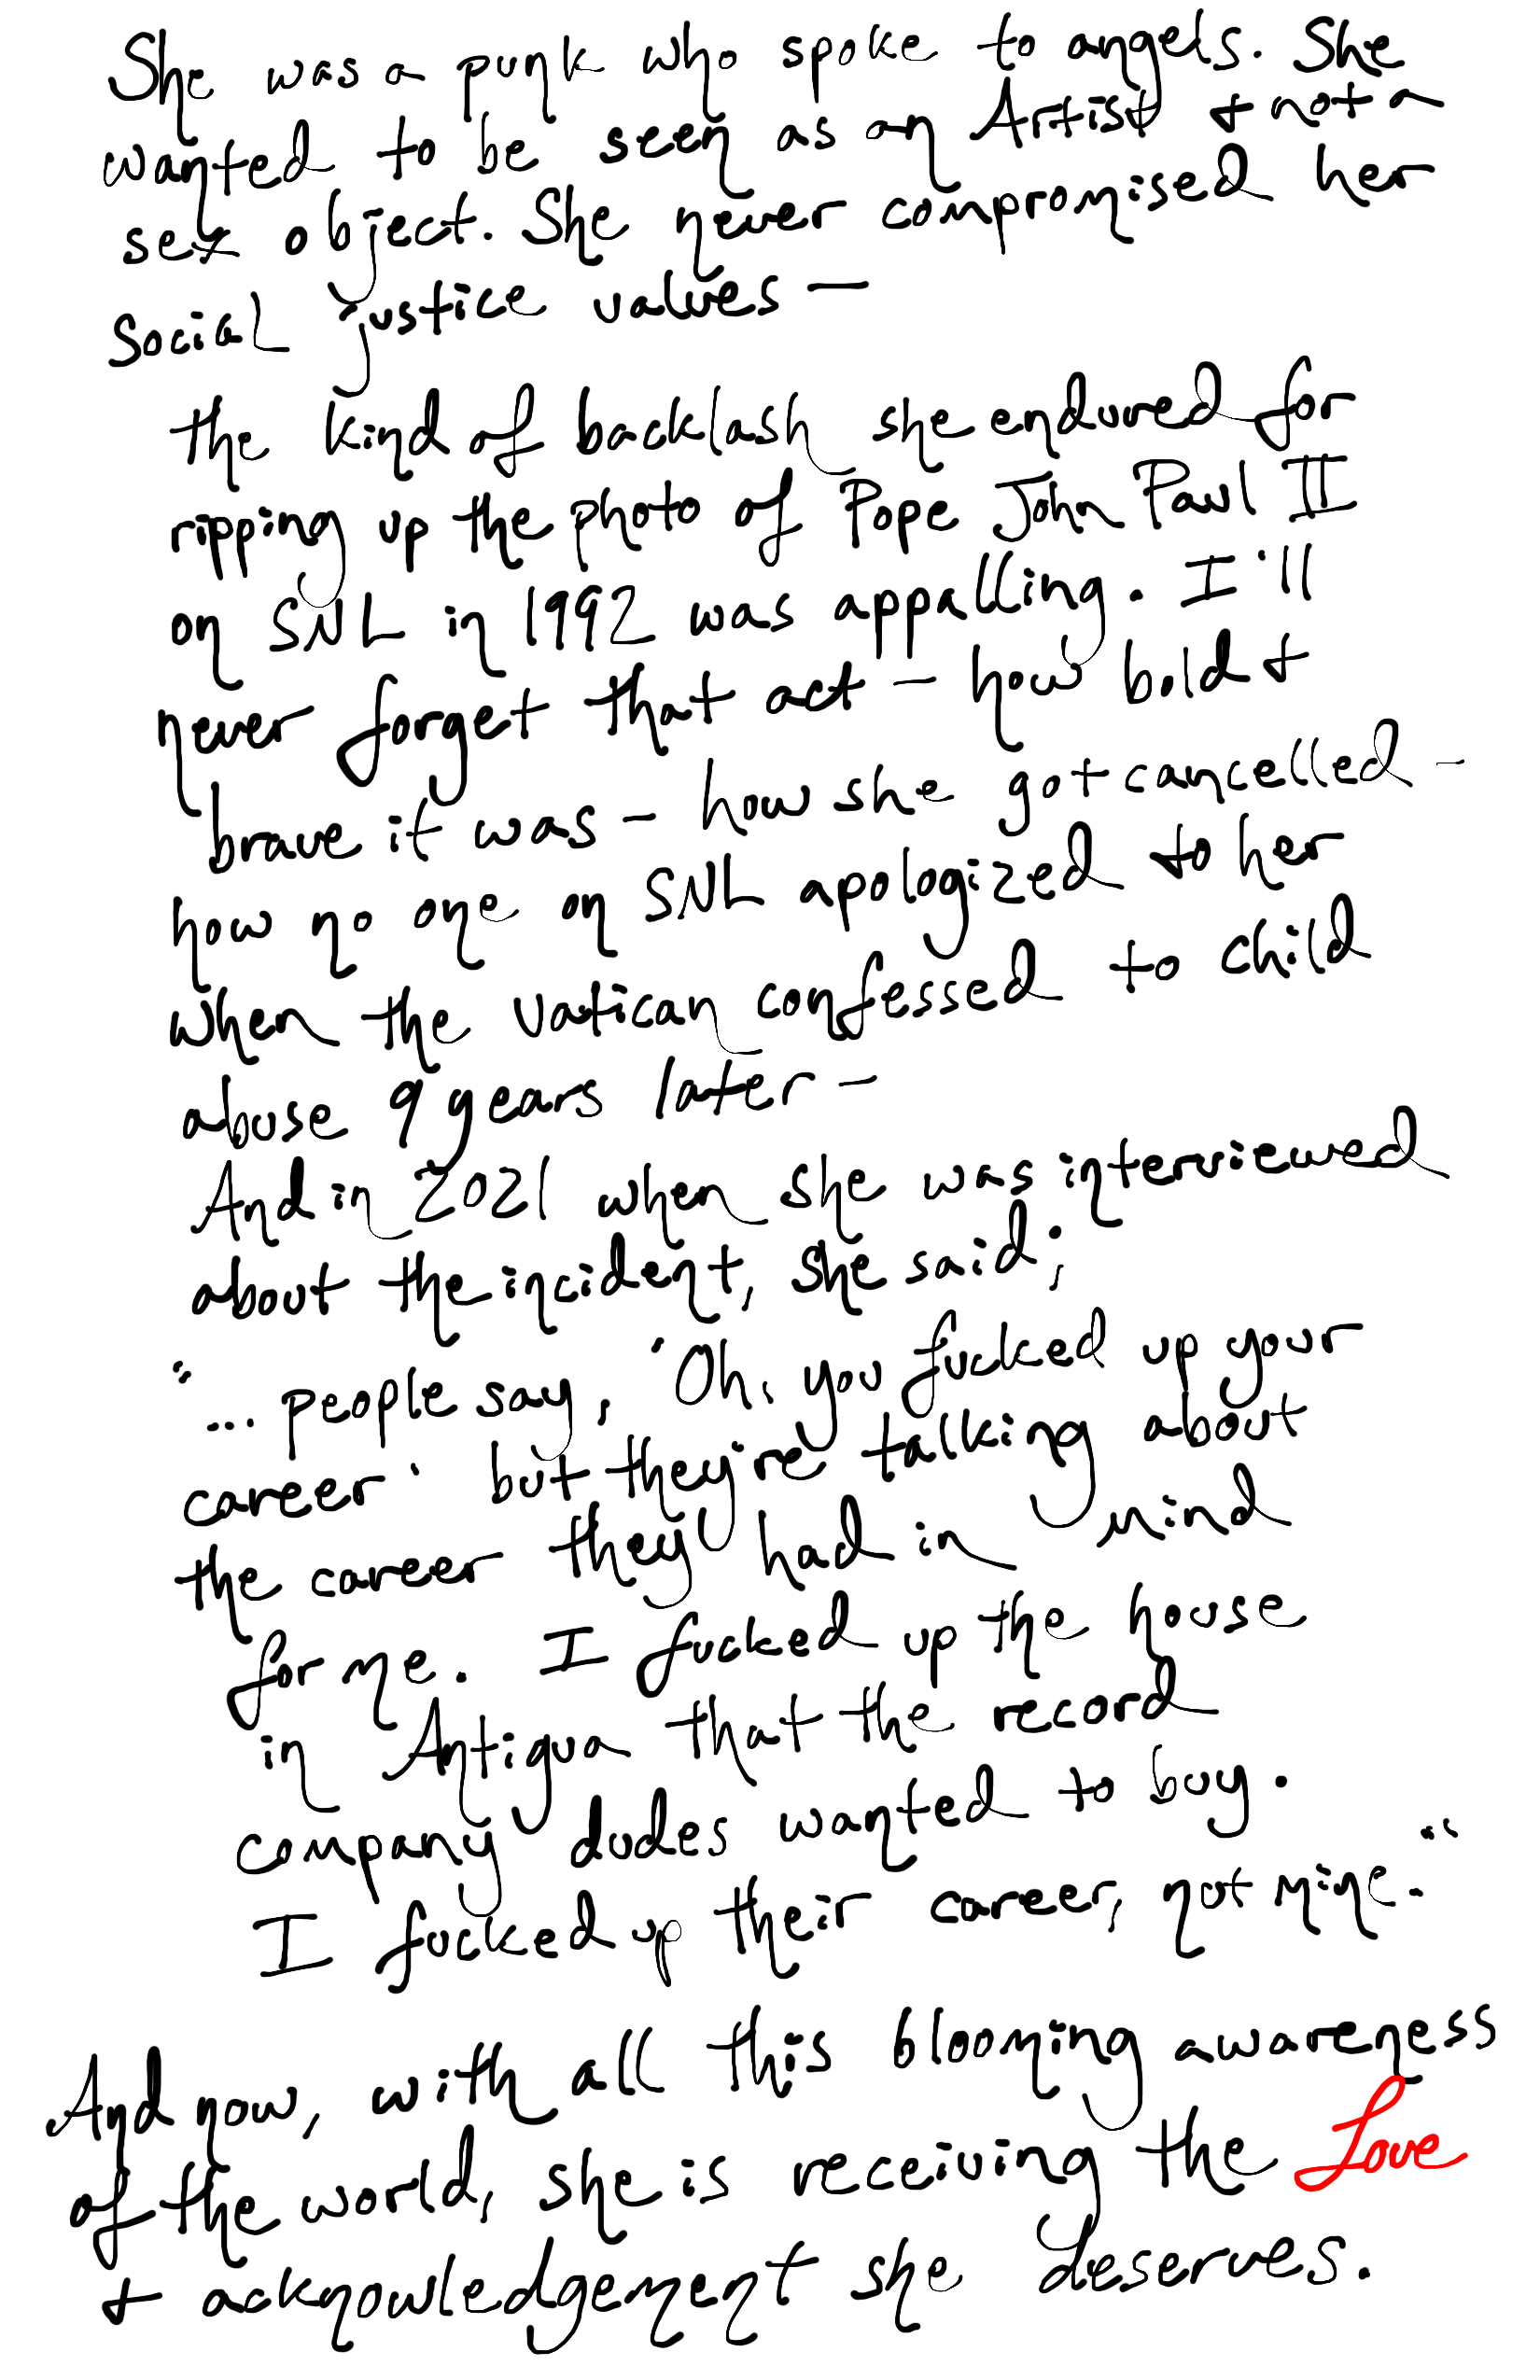 She was a punk who spoke to angels. She
wanted to be seen as an Artist + not a
sex object. She never compromised her
social justice values—
the kind of backlash she endured for
ripping up the photo of Pope John Paul II
on SNL in 1992 was appalling. I'll
never forget that act - how bold +
brave it was - how she got cancelled -
how no one on SNL apologized to her
when the vatican confessed to child
abuse 9 years later -
And in 2021 when she was interviewed
about the incident, she said;
"... people say, 'Oh, you fucked up your
career' but they're talking about
the career they had in mind
for me. I fucked up the house
in Antigua that the record
company dudes wanted to buy.
I fucked up their career, not mine."
And now, with all this blooming awareness
of the world, she is receiving the Love
+ acknowledgement she deserves.